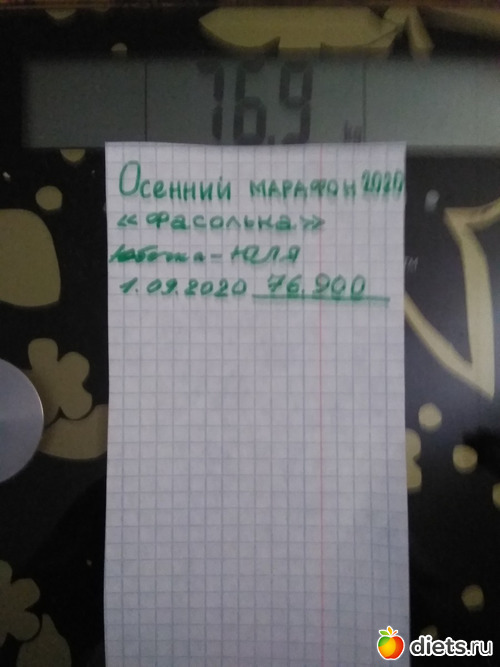 76.9 kg
Осенний марафон 2020
«Фасолька»
Юля
1.09.2020 76.900
TM
diets.ru